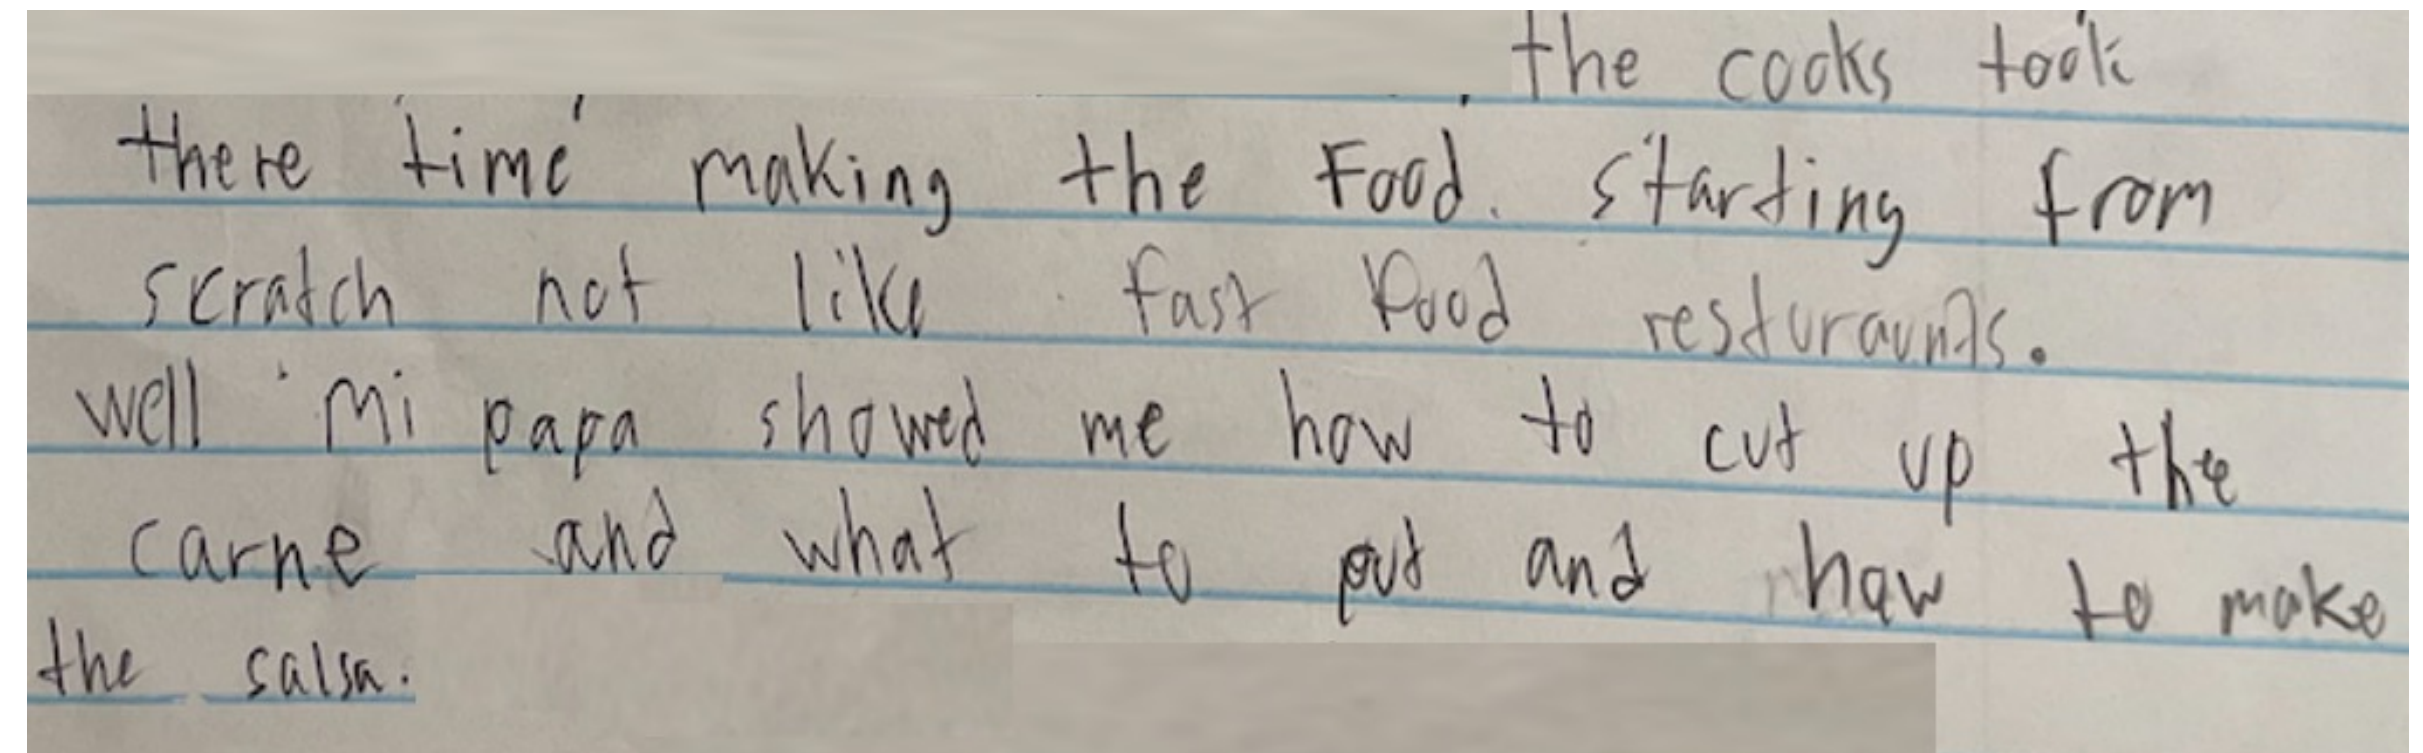 the cooks took
there time making the Food. starting from
scratch not like fast food resturaunts.
well mi papa showed me how to cut up the
carne and what to put and how to make
the salsa.